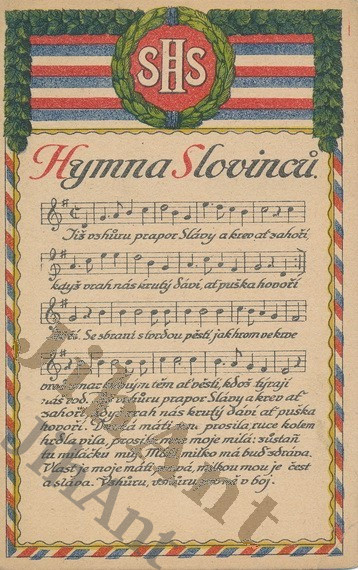 SHS
Hymna Slovinců.
Již vzhůru prapor Slávy a krev ať zahoří,
když vrah nás krutý dáví, ať puška hovoří
Se zbraní s tvrdou pěstí, jak hrom ve krve
tén ať věstí, kdož týrají
nás rod. vzhůru prapor Slávy a krev ať
zahoří, když vrah nás krutý dáví ať puška
hovoří. mati prosila, ruce kolem
hrdla vila, moje milá: zůstaň
tu miláčku můj. milko má buď zdráva.
Vlast je moje máti milkou mou je čest
a sláva. Vzhůru, v boj.
JiriAnt
JiriAnt